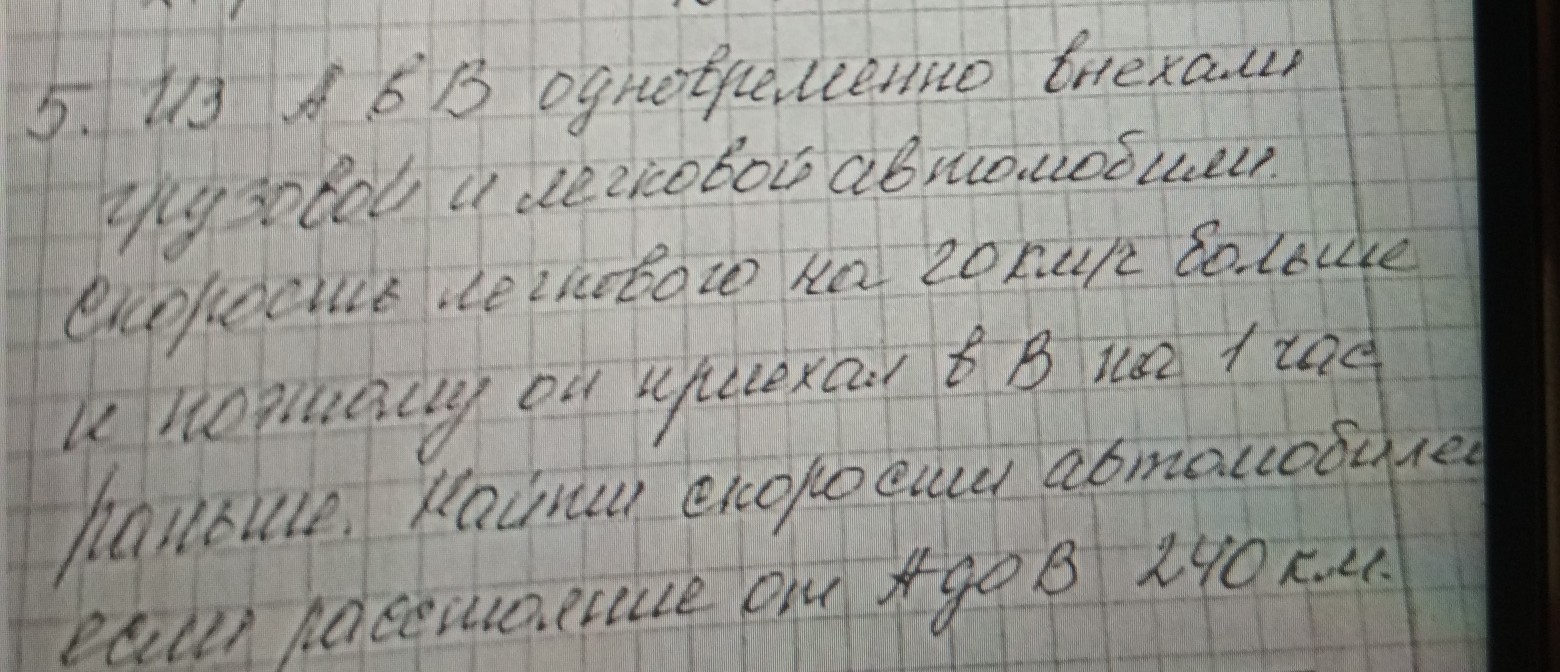 5. Из А в В одновременно внехали
грузовой и легковой автомобили.
Скорость легкового на 20 км/г больше
и поэтому он приехал в В на 1 час
раньше. Найти скорости автомобилей
если расстояние от А до В 240 км.